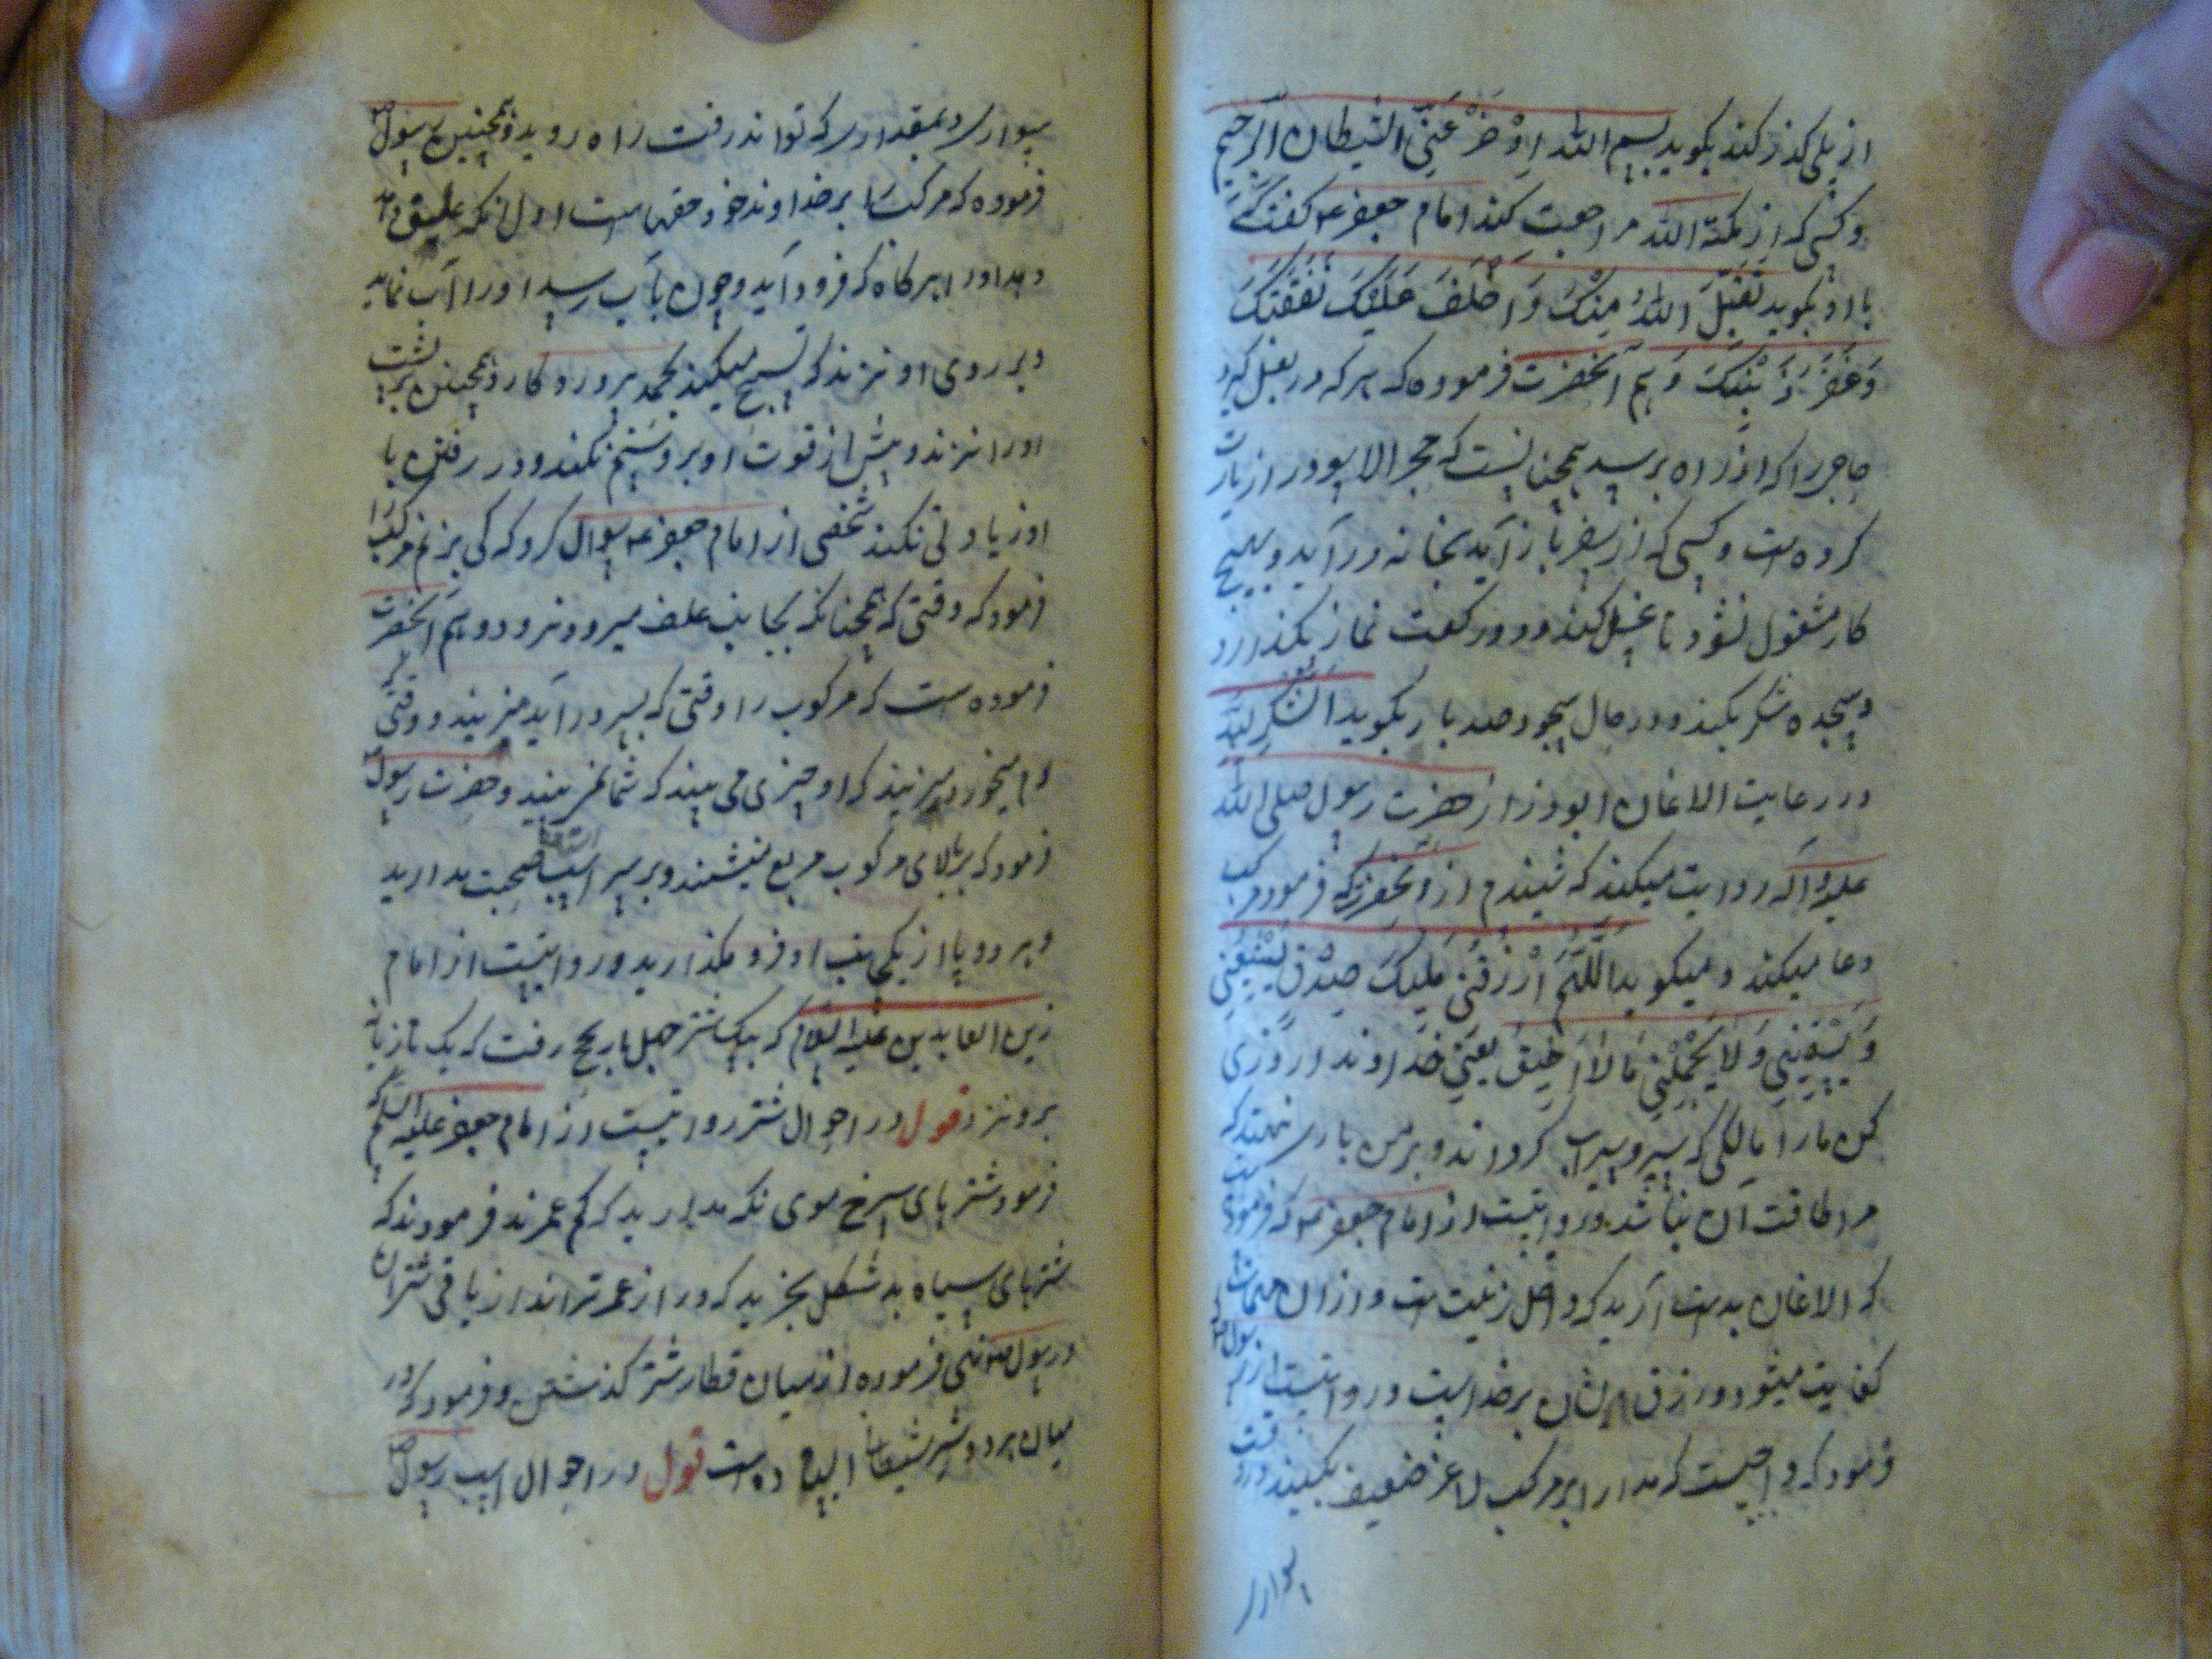 از پلی کذر کند بکوید بسم الله ادخر عنی الشیطان الرجیم
و کسی که از مکة الله مراجعت کند امام جعفر ع کفت که
با او بکوید تقبل الله منک و اخلف علیک نفقتک
و غفر ذنبک و هم آنحضرت فرموده که هر که در بغل کیرد
حاجی را که از راه برسد همچنانست که حجر الاسود را زیارت
کرده است و کسی که از سفر باز آید بخانه در آید و بهیچ
کار مشغول نشود تا غسل کند و دو رکعت نماز بکذارد
و سجده شکر بکند و در حال سجود صد بار بکوید الشکر لله
در رعایت الاغان ابوذر از حضرت رسول صلی الله
علیه و آله روایت میکند که شنیدم از آنحضرت که فرمود مرکب
دعا میکند و میکوید اللهم ارزقنی ملیک صدق یشبعنی
و یسقینی و لا یحملنی ما لا اطیق یعنی خداوندا روزی
کن مارا مالکی که سیر و سیراب کرداند و بر من باری ننهد که
مرا طاقت آن نباشد و روایتست از امام جعفر ع که فرمود
که الاغان بدست آرید که داخل زینت است و از آن مهمات
کفایت میشود و رزق ایشان بر خداست و روایتست از رسول ص
فرمود که واجبست که مدارا بر مرکب لاغر ضعیف بکنید
سواری
سواری و بمقداری که تواند رفت راه روید و همچنین رسول ص
فرموده که مرکب را بر خداوند خود حقهاست اول آنکه علیق
دهد اورا هر کاه که فرود آید و چون بآب رسد اورا آب نماید
و بر روی او نزند که تسبیح میکند بحمد پروردکار و همچنین بر پشت
اورا نزند و بیش از قوت او بر و ستم نکند و در رفتن با
او زیادتی نکند شخصی از امام جعفر ع سوال کرد که کی بزنم مرکب را
فرمود که وقتی که همچنانکه بجانب علف میرود نرود و هم آنحضرت
فرموده است که مرکوب را وقتی که بسر در آید مزنید و وقتی
رم میخورد بزنید که او چیزی می بیند که شما نمی بینید و حضرت رسول ص
فرمود که بر بالای مرکوب مربع ننشیند و بر سر اسب صحبت مدارید
و هر دو پا از یکجانب او فرو مکذارید و روایتست از امام
زین العابدین علیه السلام که بیک شتر چهل بار بحج رفت که یک تازیانه
برو نزد قول در احوال شتر روایتست از امام جعفر علیه السلام که
فرمود شتر های سرخ موی نکه مدارید که کم عمرند فرمودند که
شتر های سیاه بد شکل بخرید که دراز عمر تراند از باقی شتران
و رسول ص نهی فرموده از میان قطار شتر کذشتن و فرمود که در
میان هر دو شتر شیطان ایستاده است قول در احوال اسب رسول ص